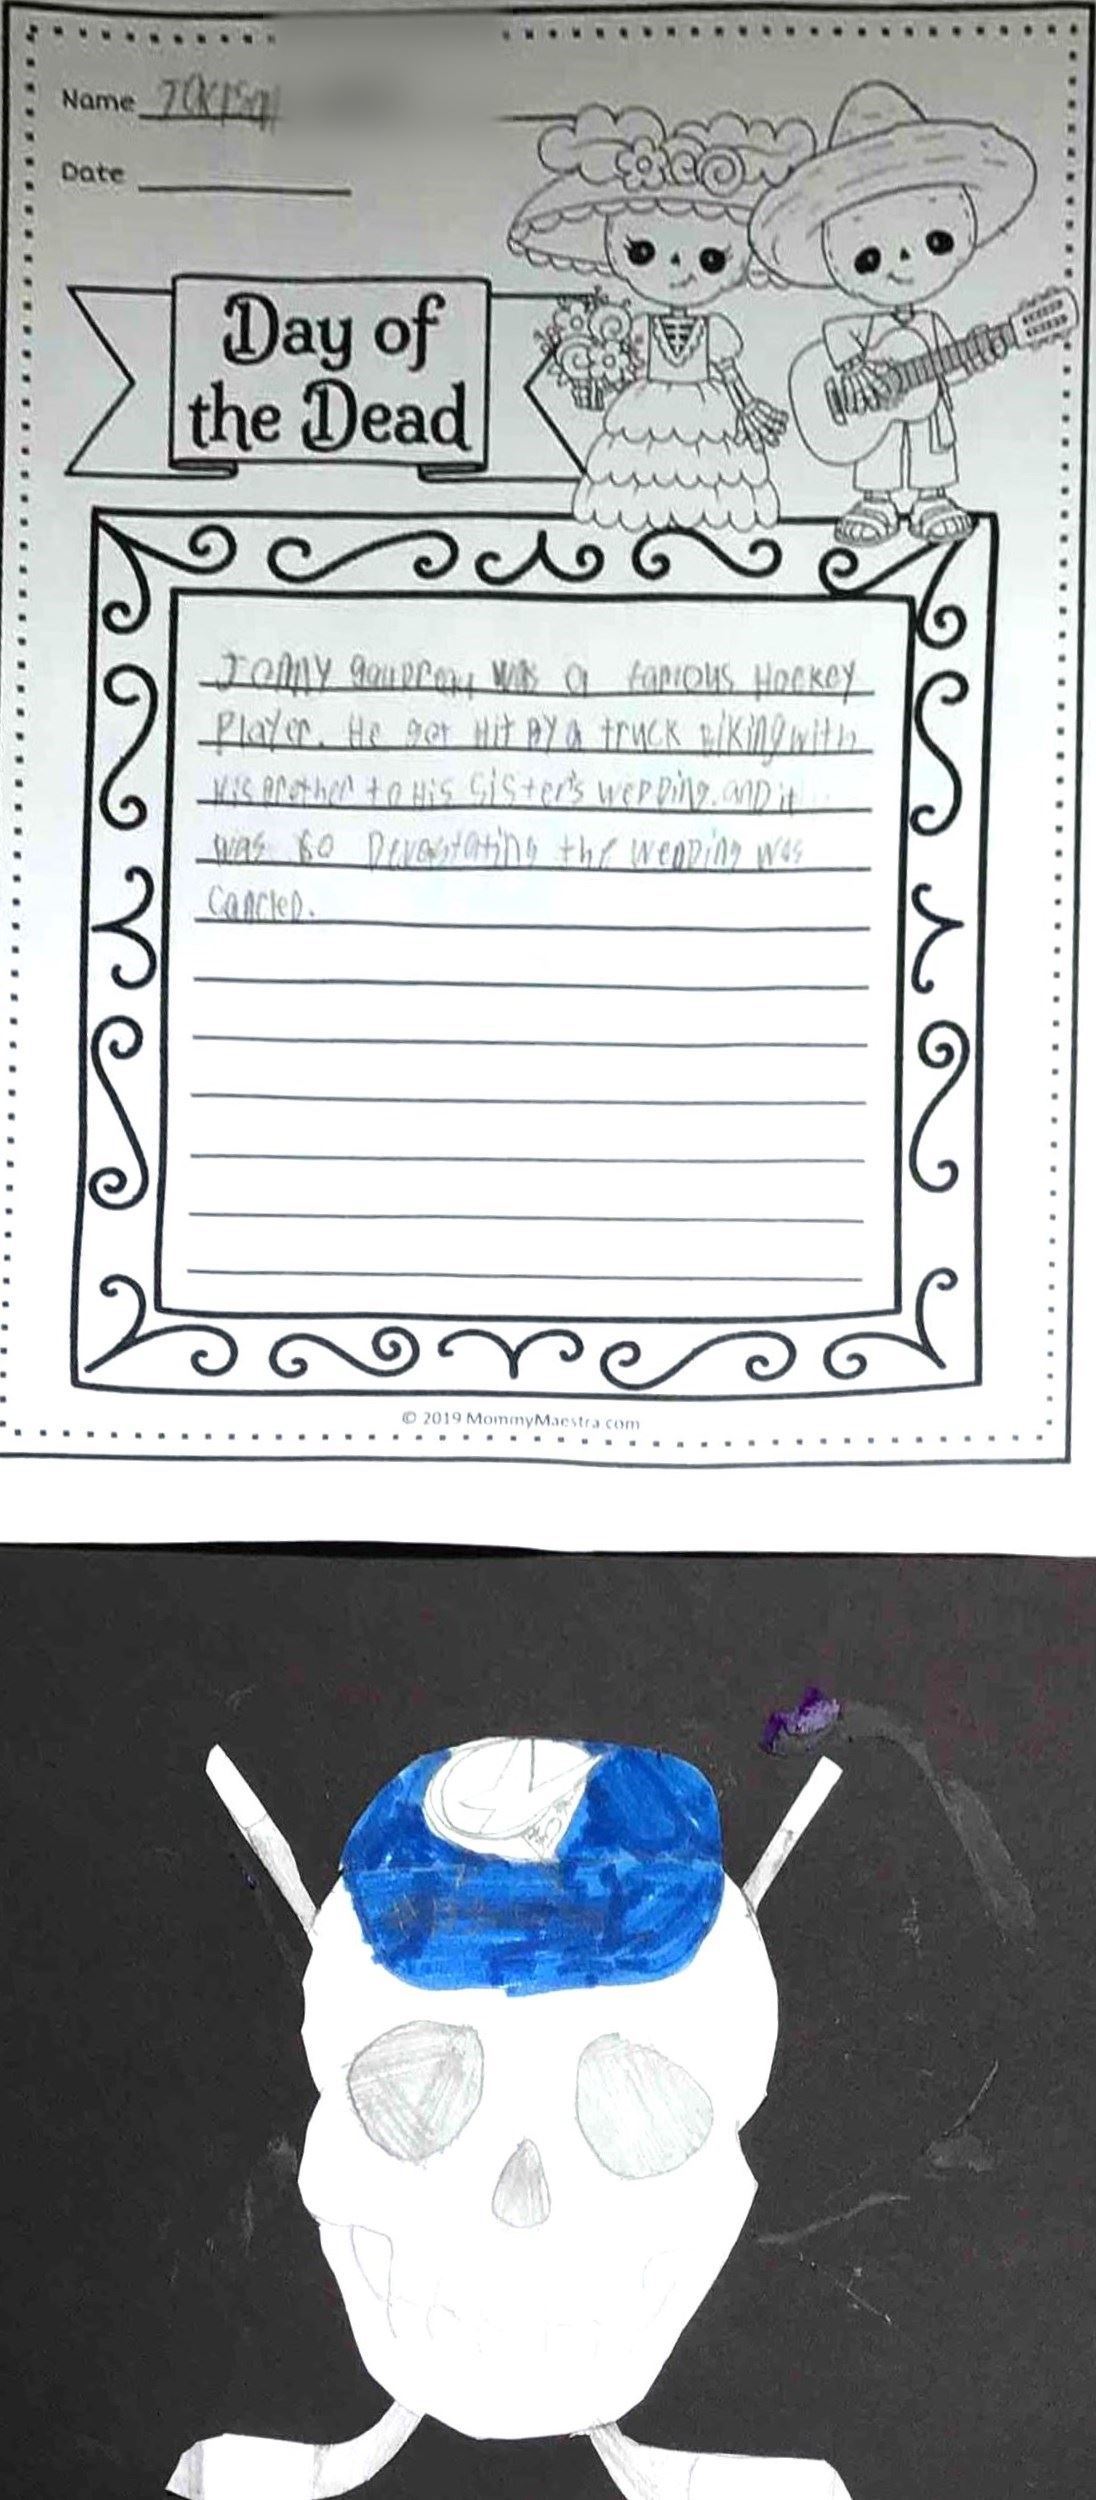 Name Jackson
Date
Day of
the Dead
Jonny gaudreau was a famous Hockey
Player. He got Hit By a truck Biking with
His Brother to His Sister's WeDDing. anD it
was so Devastating the WeDDing was
CancleD.
© 2019 MommyMaestra.com